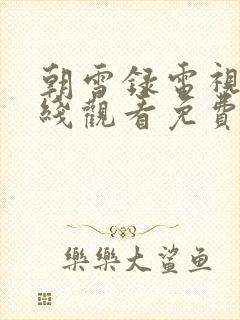 朝雪録電視
綫觀看免費
樂樂大鯊鱼